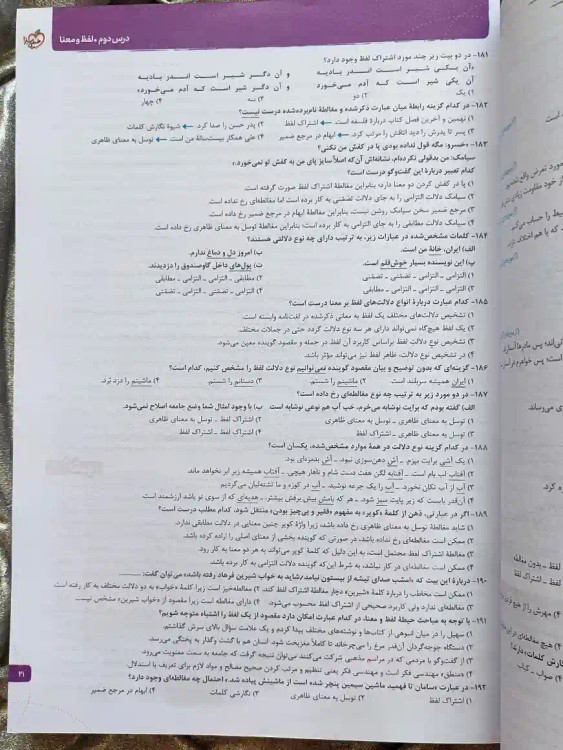 درس دوم • لفظ و معنا
۱۸۱- در دو بیت زیر چند مورد اشتراک لفظ وجود دارد؟
«آن یـکـی شـیـر اسـت انـدر بـادیـه و آن دگـر شـیـر اسـت انـدر بـادیـه
آن یکی شیر است که آدم می‌خورد و آن دگر شیر است که آدم می‌خورد»
۱) یک ۲) دو ۳) سه ۴) چهار
۱۸۲- در کدام گزینه رابطهٔ میان عبارت ذکرشده و مغالطهٔ نام‌برده‌شده درست نیست؟
۱) نهمین و آخرین فصل کتاب دربارهٔ فلسفه است. ← اشتراک لفظ ۲) پدر حسن را صدا کرد. ← شیوهٔ نگارش کلمات
۳) پسر تا پدرش را دید اتاقش را مرتب کرد. ← ابهام در مرجع ضمیر ۴) علی همکار بیست‌سالهٔ من است. ← توسل به معنای ظاهری
۱۸۳- «خسرو: مگه قول نداده بودی پا در کفش من نکنی؟
سیامک: من بدقولی نکرده‌ام. نشانه‌اش آن‌که اصلاً سایز پای من به کفش تو نمی‌خورد.»
کدام تعبیر دربارهٔ این گفت‌وگو درست است؟
۱) پا در کفش کردن دو معنا دارد؛ بنابراین مغالطهٔ اشتراک لفظ صورت گرفته است.
۲) سیامک دلالت التزامی را به جای دلالت تضمنی به کار برده است اما مغالطه‌ای رخ نداده است.
۳) مرجع ضمیر سخن سیامک روشن نیست، بنابراین مغالطهٔ ابهام در مرجع ضمیر رخ داده است.
۴) سیامک دلالت مطابقی را به جای التزامی به کار برده است؛ بنابراین مغالطهٔ توسل به معنای ظاهری رخ داده است.
۱۸۴- کلمات مشخص‌شده در عبارات زیر، به ترتیب دارای چه نوع دلالتی هستند؟
الف) ایران، خانهٔ من است. ب) امروز دل و دماغ ندارم.
پ) این نویسنده بسیار خوش‌قلم است. ت) پول‌های داخل گاوصندوق را دزدیدند.
۱) التزامی ـ التزامی ـ تضمنی ـ تضمنی ۲) مطابقی ـ التزامی ـ التزامی ـ مطابقی
۳) التزامی ـ التزامی ـ التزامی ـ مطابقی ۴) التزامی ـ تضمنی ـ التزامی ـ تضمنی
۱۸۵- کدام عبارت دربارهٔ انواع دلالت‌های لفظ بر معنا درست است؟
۱) تشخیص دلالت‌های مختلف یک لفظ به معانی ذکرشده در لغت‌نامه وابسته است.
۲) یک لفظ هیچ‌گاه نمی‌تواند دارای هر سه نوع دلالت گردد حتی در جملات مختلف.
۳) تشخیص نوع دلالت لفظ براساس کاربرد آن لفظ در جمله و مقصود گوینده معین می‌شود.
۴) در تشخیص نوع دلالت، ظاهر لفظ نیز می‌تواند مؤثر باشد.
۱۸۶- گزینه‌ای که بدون توضیح و بیان مقصود گوینده نمی‌توانیم نوع دلالت لفظ را مشخص کنیم، کدام است؟
۱) ایران همیشه سربلند است. ۲) ماشینم را شستم. ۳) دستانم را شستم. ۴) ماشینم را دزد بُرد.
۱۸۷- در دو مورد زیر به ترتیب چه نوع مغالطه‌ای رخ داده است؟
الف) گفته بودم که برایت نوشابه می‌خرم، خب آب هم نوعی نوشابه است. ب) با وجود امثال شما وضع جامعه اصلاح نمی‌شود.
۱) توسل به معنای ظاهری ـ توسل به معنای ظاهری ۲) اشتراک لفظ ـ توسل به معنای ظاهری
۳) توسل به معنای ظاهری ـ اشتراک لفظ ۴) اشتراک لفظ ـ اشتراک لفظ
۱۸۸- در کدام گزینه نوع دلالت در همهٔ موارد مشخص‌شده، یکسان است؟
۱) یک آشی برایت بپزم. ـ آش دهن‌سوزی نبود. ـ آش بدمزه‌ای بود.
۲) آفتاب لب بام است. ـ آفتابه لگن هفت دست شام و ناهار هیچی. ـ آفتاب همیشه زیر ابر نخواهد ماند.
۳) آب از آب تکان نخورد. ـ آب را یک جرعه نوشید. ـ آب در کوزه و ما تشنه‌لبان می‌گردیم
۴) آن‌قدر بایست که زیر پایت سبز شود. ـ هر که بامش بیش برفش بیشتر. ـ هدیه‌ای که از سوی تو باشد ارزشمند است.
۱۸۹- اگر در عبارتی، ذهن از کلمهٔ «کویر» به مفهوم «فقیر و بی‌چیز بودن» منتقل شود، کدام مطلب درست است؟
۱) شاید مغالطهٔ توسل به معنای ظاهری رخ داده باشد، زیرا واژهٔ کویر چنین معنایی در دلالت مطابقی ندارد.
۲) ممکن است مغالطه‌ای رخ نداده باشد، در صورتی که گوینده بخشی از معنای اصلی را اراده کرده باشد.
۳) مغالطهٔ اشتراک لفظ محتمل است، به این دلیل که کلمهٔ کویر می‌تواند به هر دو معنا به کار رود.
۴) ممکن است مغالطه‌ای در کار نباشد، به شرط این‌که گوینده دلالت التزامی به کار برده باشد.
۱۹۰- دربارهٔ این بیت که «امشب صدای تیشه از بیستون نیامد / شاید به خواب شیرین فرهاد رفته باشد» می‌توان گفت: ....................
۱) ممکن است مخاطب را دربارهٔ کلمهٔ «شیرین» دچار مغالطهٔ اشتراک لفظ کند. ۲) مغالطه‌خیز است زیرا کلمهٔ «خواب» به دو دلالت مختلف به کار رفته است.
۳) مغالطه‌ای ندارد ولی کاربرد صحیحی از اشتراک لفظ محسوب می‌شود. ۴) دارای مغالطه است زیرا مقصود از «خواب شیرین» مشخص نیست.
۱۹۱- با توجه به مباحث حیطهٔ لفظ و معنا، در کدام عبارت امکان دارد مقصود از یک لفظ را اشتباه متوجه شویم؟
۱) سهیل را در میان انبوهی از کتاب‌ها و نوشته‌های مختلف پیدا کردم و یک علامت سؤال بالای سرش گذاشتم.
۲) دستگاه جوجه‌گردان آن‌قدر مرغ را می‌چرخاند تا کاملاً مغزپخت شود، انسان هم با گشت وگذار به پختگی می‌رسد.
۳) از گفت‌وگو با مردمی که در مراسم مذهبی شرکت می‌کنند می‌توان نتیجه گرفت که جامعه به سمت معنویت می‌رود.
۴) «منطق» مهندسی فکر است و مهندسی فکر یعنی تنظیم و مرتب کردن صحیح مصالح و مواد لازم برای تعریف یا استدلال.
۱۹۲- در عبارت «سامان تا فهمید ماشین سیمین پنچر شده است از ماشینش پیاده شد.» احتمال چه مغالطه‌ای وجود دارد؟
۱) اشتراک لفظ ۲) توسل به معنای ظاهری ۳) نگارشی کلمات ۴) ابهام در مرجع ضمیر
۲۱